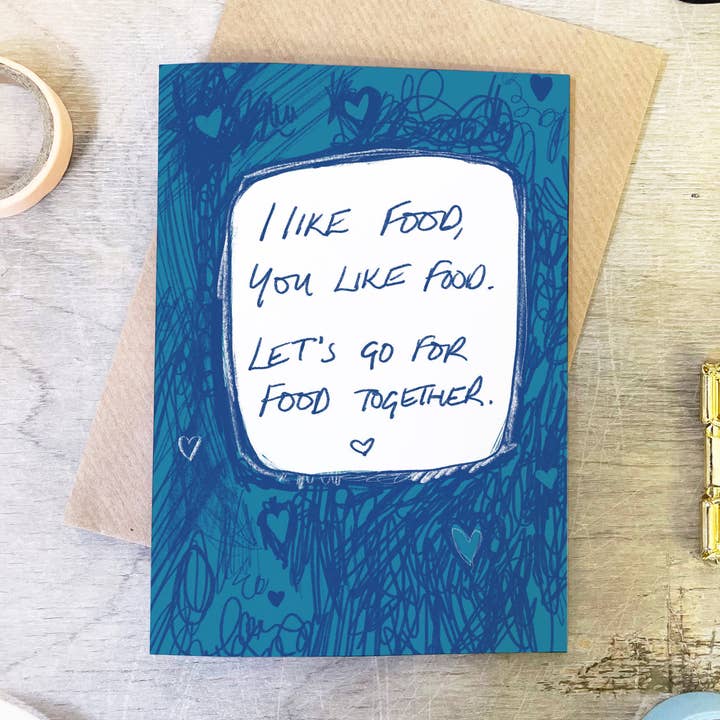 I LIKE FOOD,
YOU LIKE FOOD.
LET'S GO FOR
FOOD TOGETHER.